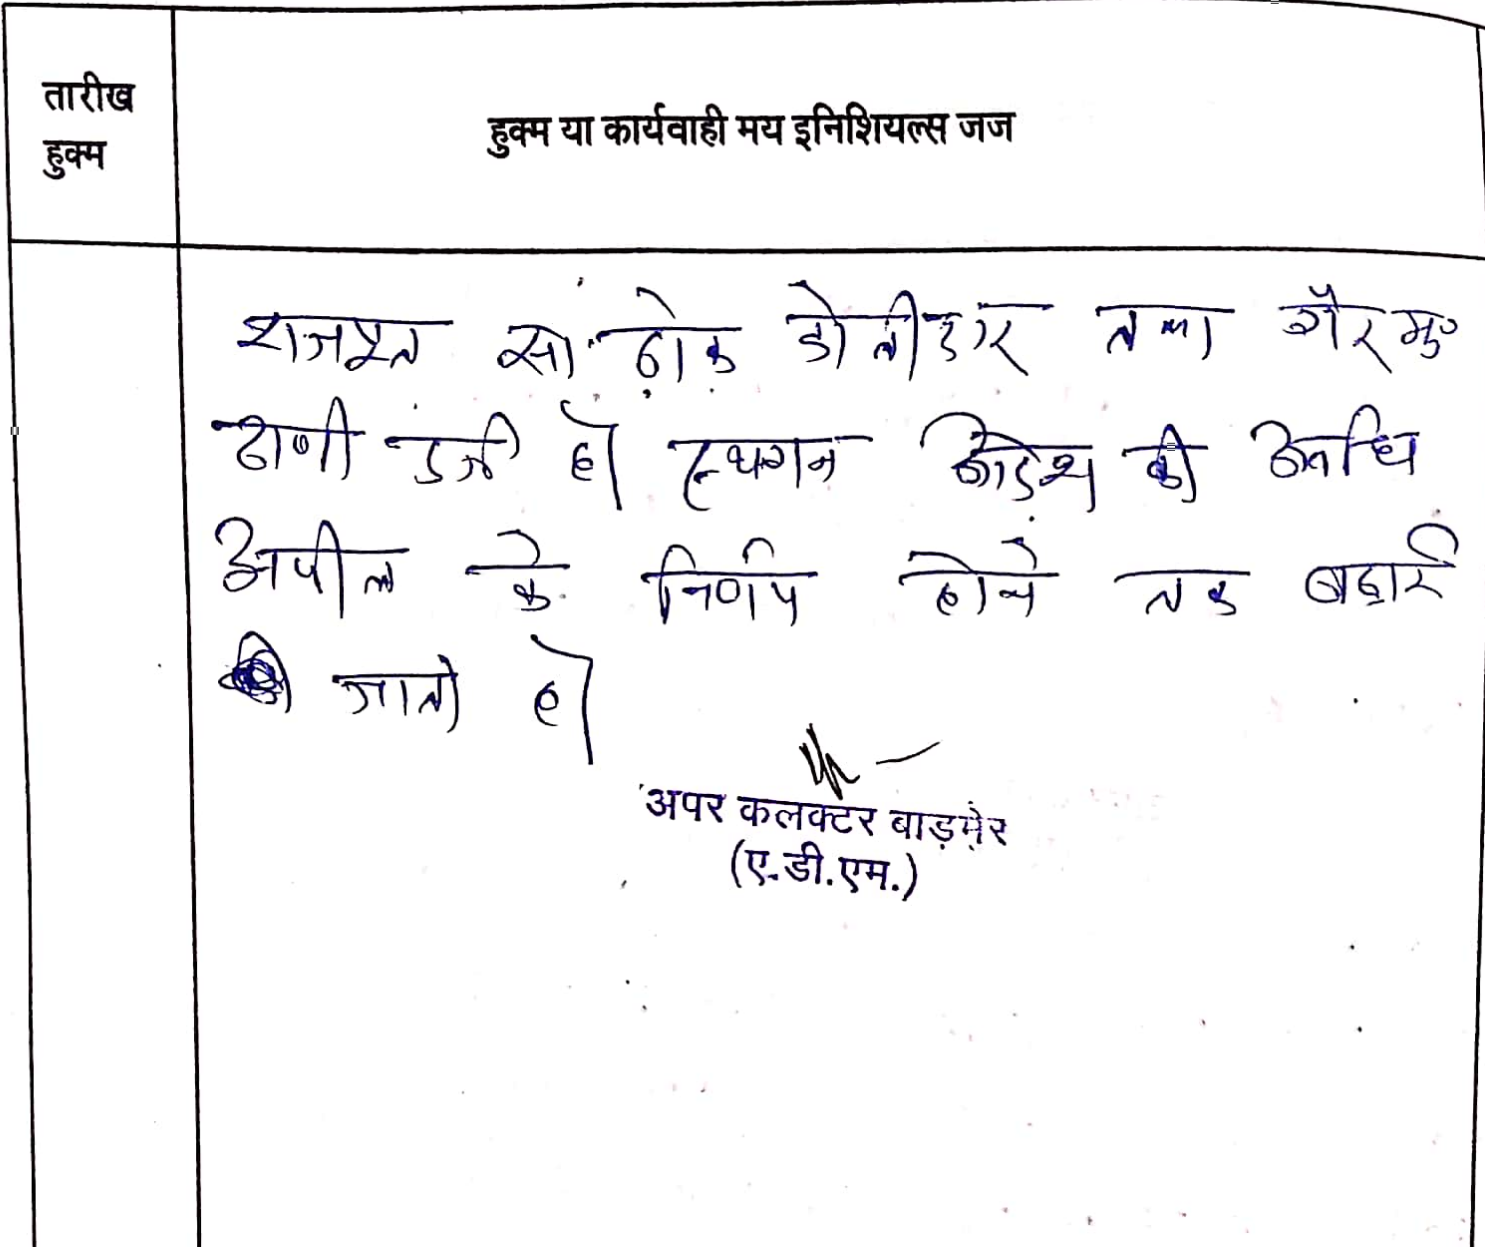 तारीख
हुक्म
हुक्म या कार्यवाही मय इनिशियल्स जज
राजपूत सा. डोलीदार तथा गैर मु०
ढाणी दर्ज है। स्थगन आदेश की अवधि
अपील के निर्णय होने तक बढाई
जाती है।
अपर कलक्टर बाड़मेर
(ए.डी.एम.)